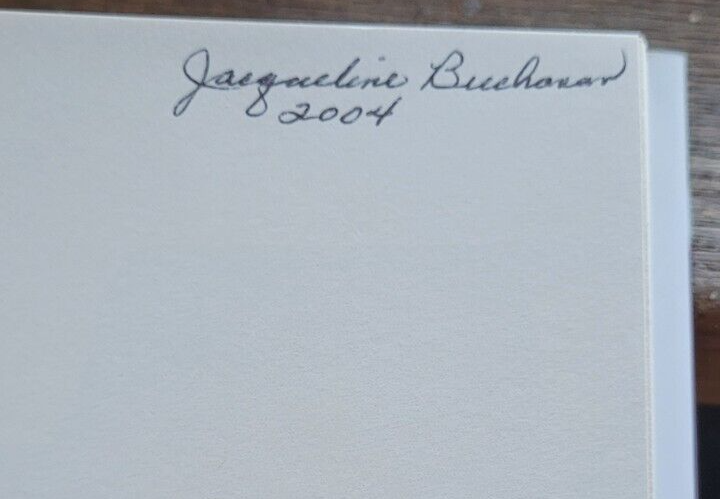 Jacqueline Buchanan
2004